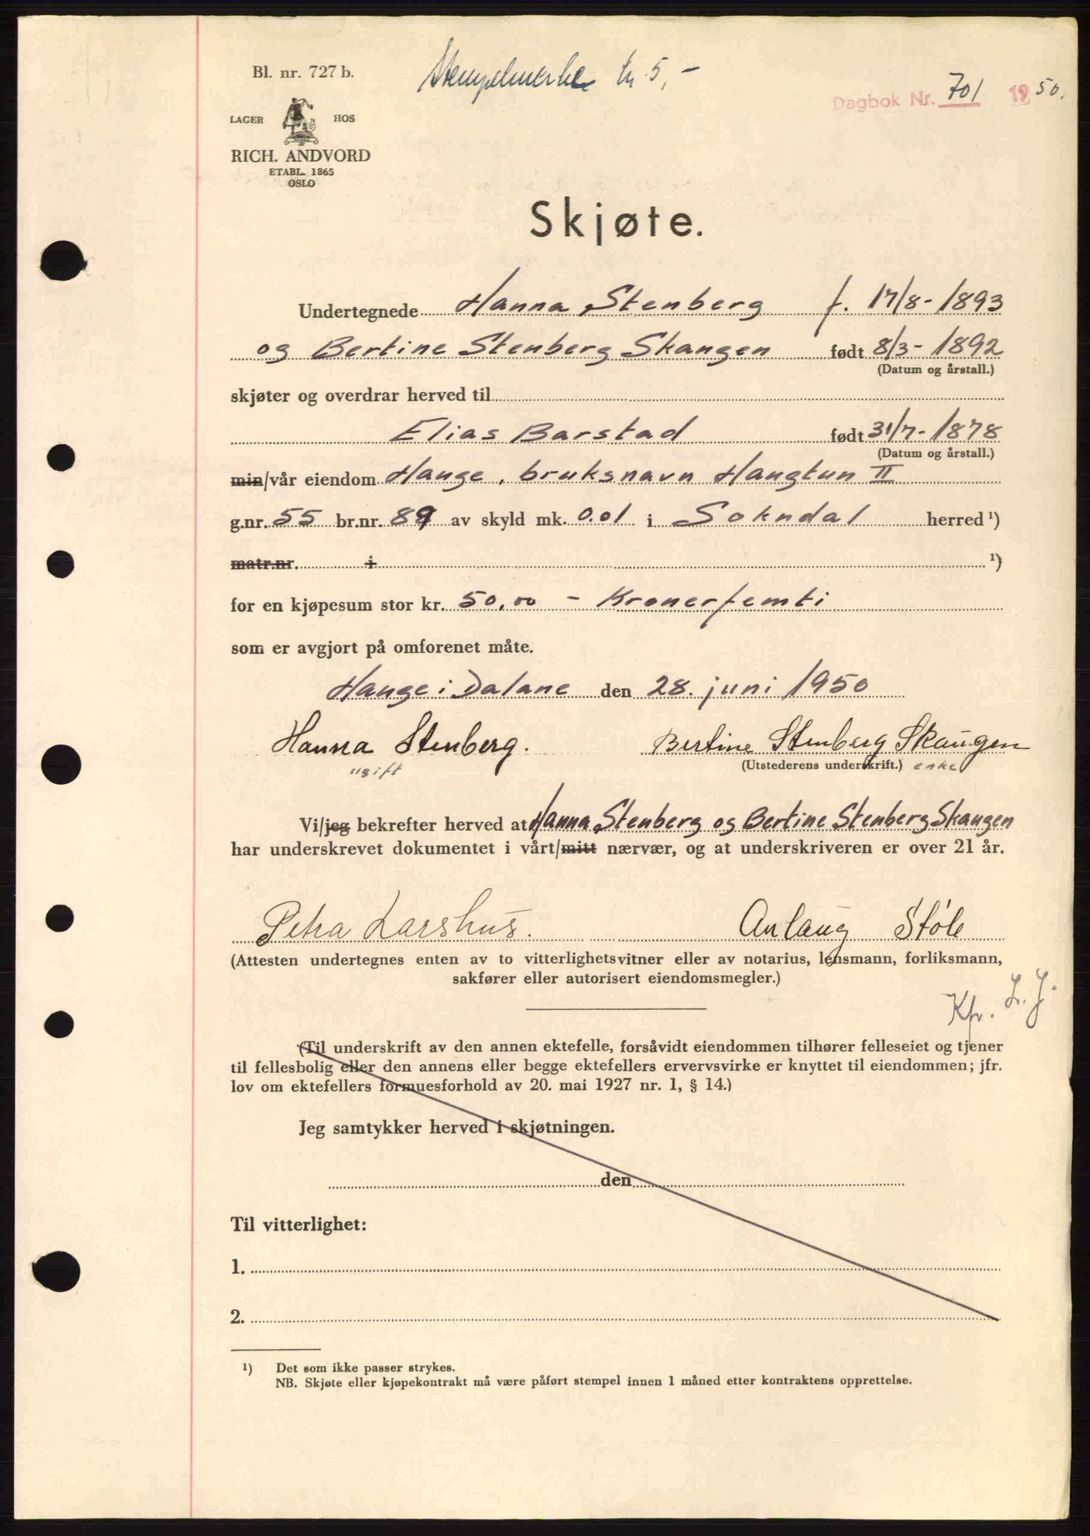 Bl. nr. 727 b.
Stempelmerke kr 5,-
Dagbok Nr. 701 1950.
LAGER HOS
RICH. ANDVORD
ETABL. 1865
OSLO
Skjøte.
Undertegnede Hanna Stenberg f. 17/8-1893
og Bertine Stenberg Skangen født 8/3-1892
(Datum og årstall.)
skjøter og overdrar herved til
Elias Barstad født 31/7-1878
(Datum og årstall.)
min/vår eiendom Hauge, bruksnavn Haugtun II
g.nr. 55 br.nr. 89 av skyld mk. 0.01 i Sokndal herred ¹)
matr.nr. i ¹)
for en kjøpesum stor kr. 50,00 - Kronerfemti
som er avgjort på omforenet måte.
Hauge i Dalane den 28. juni 1950
Hanna Stenberg. Bertine Stenberg Skaugen
ugift (Utstederens underskrift.) enke
Vi/jeg bekrefter herved at Hanna Stenberg og Bertine Stenberg Skangen
har underskrevet dokumentet i vårt/mitt nærvær, og at underskriveren er over 21 år.
Petra Larshus. Anlaug Støle
(Attesten undertegnes enten av to vitterlighetsvitner eller av notarius, lensmann, forliksmann,
sakfører eller autorisert eiendomsmegler.)
Kfr. L. J.
(Til underskrift av den annen ektefelle, forsåvidt eiendommen tilhører felleseiet og tjener
til fellesbolig eller den annens eller begge ektefellers ervervsvirke er knyttet til eiendommen; jfr.
lov om ektefellers formuesforhold av 20. mai 1927 nr. 1, § 14.)
Jeg samtykker herved i skjøtningen.
den
Til vitterlighet:
1.
2.
¹) Det som ikke passer strykes.
NB. Skjøte eller kjøpekontrakt må være påført stempel innen 1 måned etter kontraktens opprettelse.